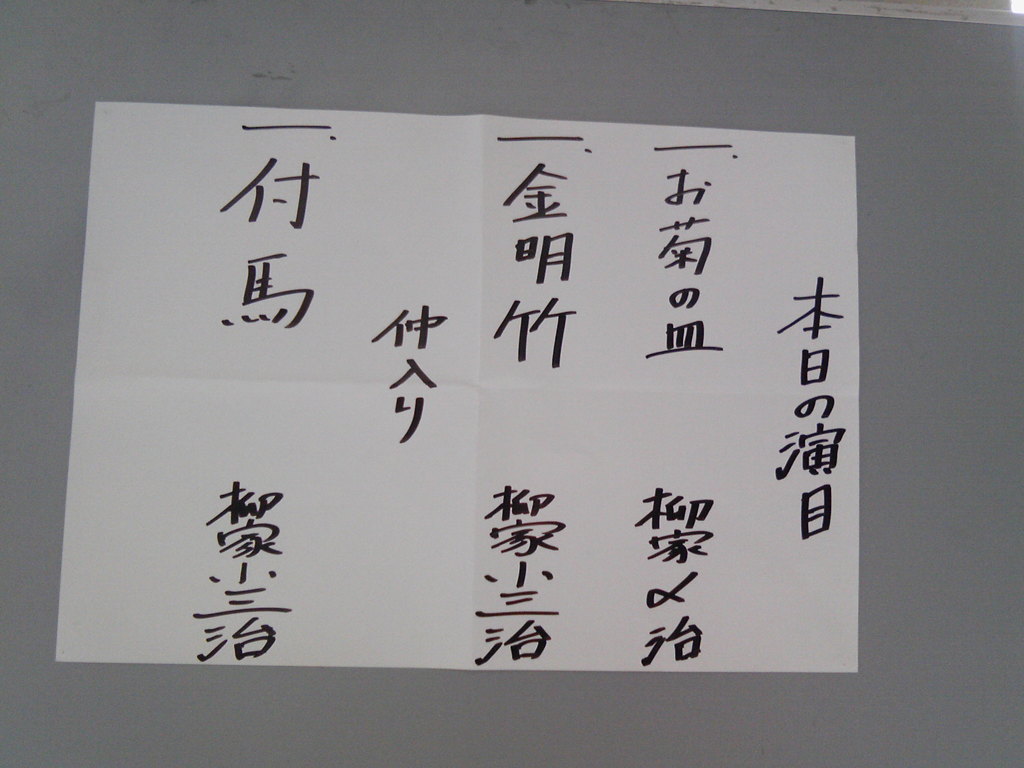 本日の演目
一.お菊の皿 柳家〆治
一.金明竹 柳家小三治
仲入り
一.付馬 柳家小三治